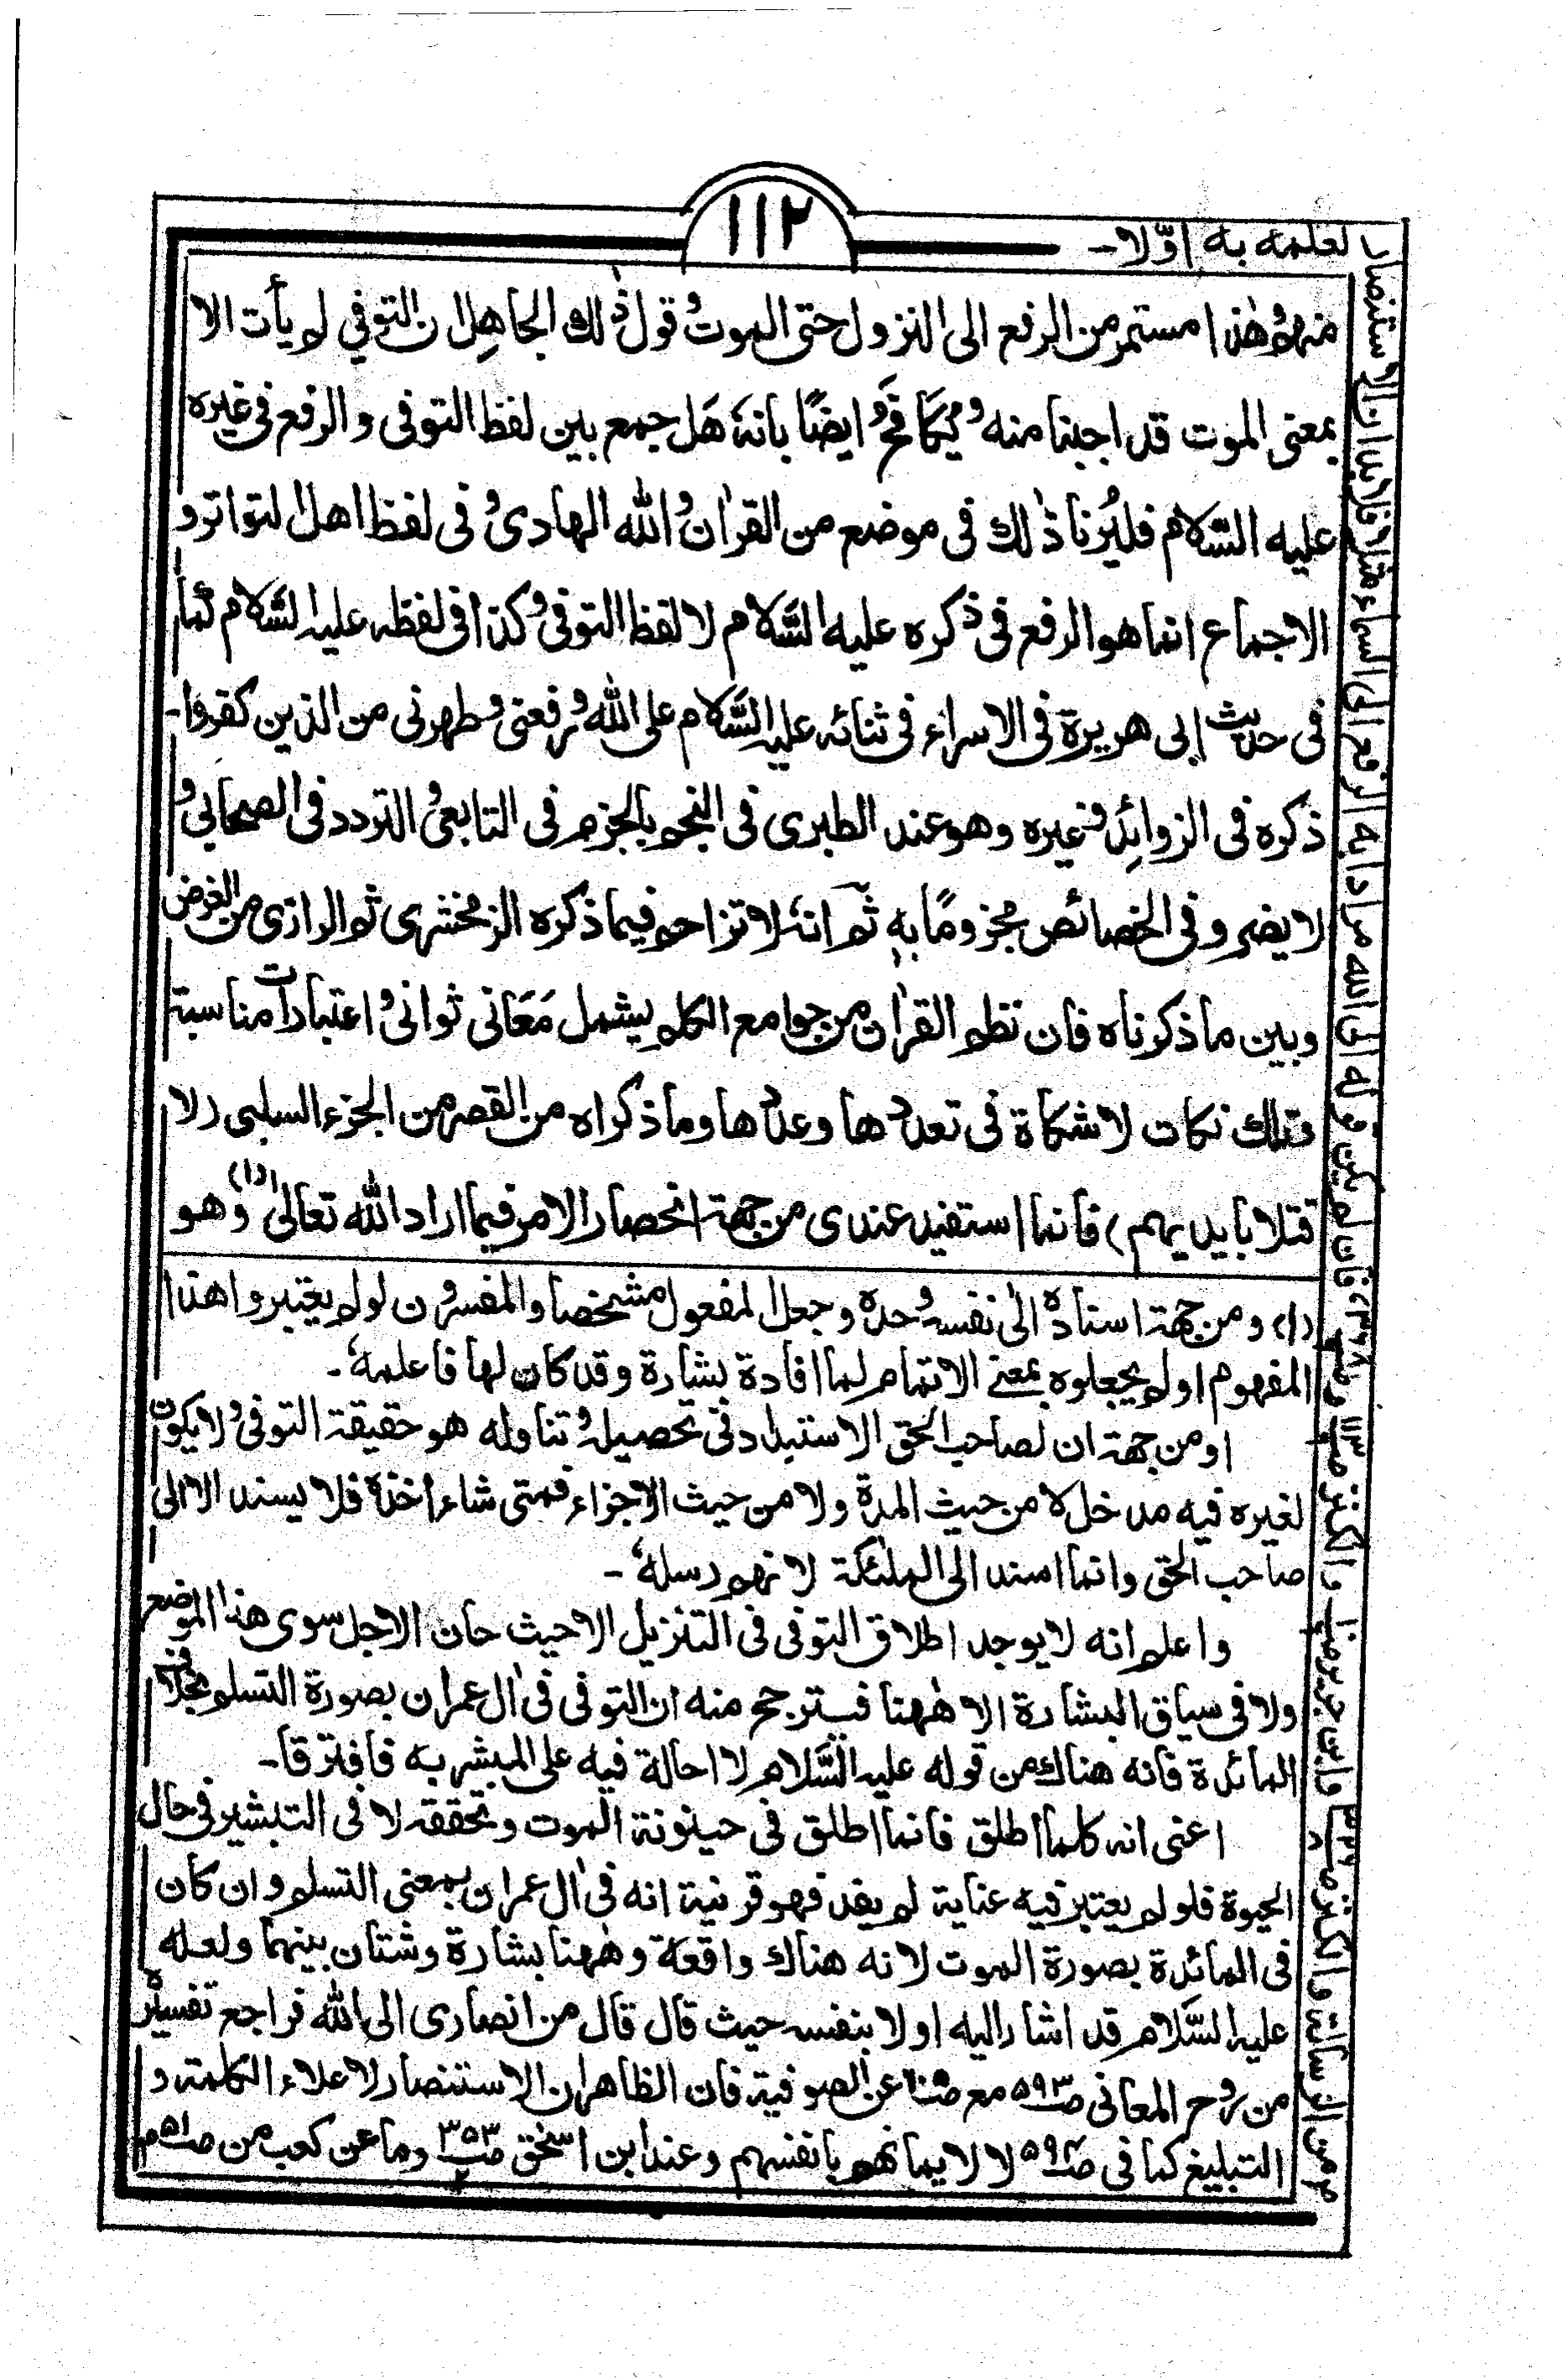 ١١٢
منهم وهٰذا مستمر من الرفع الى النزول حتى الموت وقول ذٰلك الجاهل ان التوفي لم يأت الا
بمعنى الموت قد اجبنا منه و ايضًا بانهٗ هَل جمع بين لفظ التوفى والرفع فى غيره
عليه السّلام فليُرنا ذٰلك فى موضع من القراٰن والله الهادى و فى لفظ اهل التواتر و
الاجماع انما هو الرفع فى ذكره عليه السَّلام لا لفظ التوفى وكذا فى لفظه عليه السَّلام كما
فى حديث ابى هريرة فى الاسراء فى ثنائه عليه السَّلام على الله ورفعنى وطهرنى من الذين كفروا۔
ذكره فى الزوائد وغيره وهو عند الطبرى فى النجم بالجزم فى التابعى والتردد فى الصحابي و
لا يضر وفى الخصائص مجزومًا به ثم انهٗ لا تزاحم فيما ذكره الزمخشرى ثم الرازى من الغرض
وبين ما ذكرناه فان نظم القراٰن من جوامع الكلم يشمل مَعَانى ثوانى واعتبارات مناسبة
وتلك نكات لا شكاة فى تعددها وعدّها وما ذكراه من القصر من الجزء السلبى (لا
قتلا بايديهم) فانما استفيد عندى من جهة انحصار الامر فيما اراد الله تعالى (١) وهو
(١) ومن جهة اسناده الى نفسه وحده وجعل المفعول مشخصا والمفسرون لو لم يعتبروا هٰذا
المفهوم او لم يجعلوه بمعنى الاتمام لما افادة بشارة وقد كان لها فاعلمهٗ۔
او من جهة ان لصاحب الحق الاستبداد فى تحصيله وتناوله هو حقيقة التوفى ولا يكون
لغيره فيه مدخل لا من حيث المدة ولا من حيث الاجزاء فمتى شاء أخذهٗ فلا يسند الا الى
صاحب الحق وانما اسند الى الملئكة لانهم رسلهٗ۔
واعلم انه لا يوجد اطلاق التوفى فى التنزيل الا حيث حان الاجل سوى هذا الموضع
ولا فى سياق البشارة الا هٰهنا فترجح منه ان التوفى فى اٰل عمران بصورة التسلم بخلافه فى
المائدة فانه هناك من قوله عليه السَّلام لا احالة فيه على المبشر به فافترقا۔
اعنى انه كلما اطلق فانما اطلق فى حينونة الموت وتحققه لا فى التبشير فى حال
الحيوة فلو لم يعتبر فيه عناية لم يفد فهو قرنية انه فى اٰل عمران بمعنى التسلم وان كان
فى المائدة بصورة الموت لانه هناك واقعة وهٰهنا بشارة وشتان بينهما ولعله
عليه السَّلام قد اشار اليه اولا بنفسه حيث قال قال من انصارى الى الله فراجع تفسيره
من روح المعانى ص٥٩٣ مع عن الصوفية فان الظاهر ان الاستنصار لاعلاء الكلمة و
التبليغ كما فى لا لايمانهم بانفسهم وعند ابن اسحٰق ص٣٥٣ وما عن كعب من ص٥١
من الرسالة والكنز وابن جرير والكنز فان لم يكن قوله الى الله مرادا به الرفع الى السماء مثلا فلا بد ان الاستنصار
لعلمه به اوّلا۔